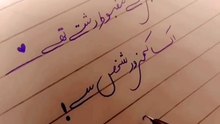 مضبوط رشتے تھے
اک کمزور شخص سے!